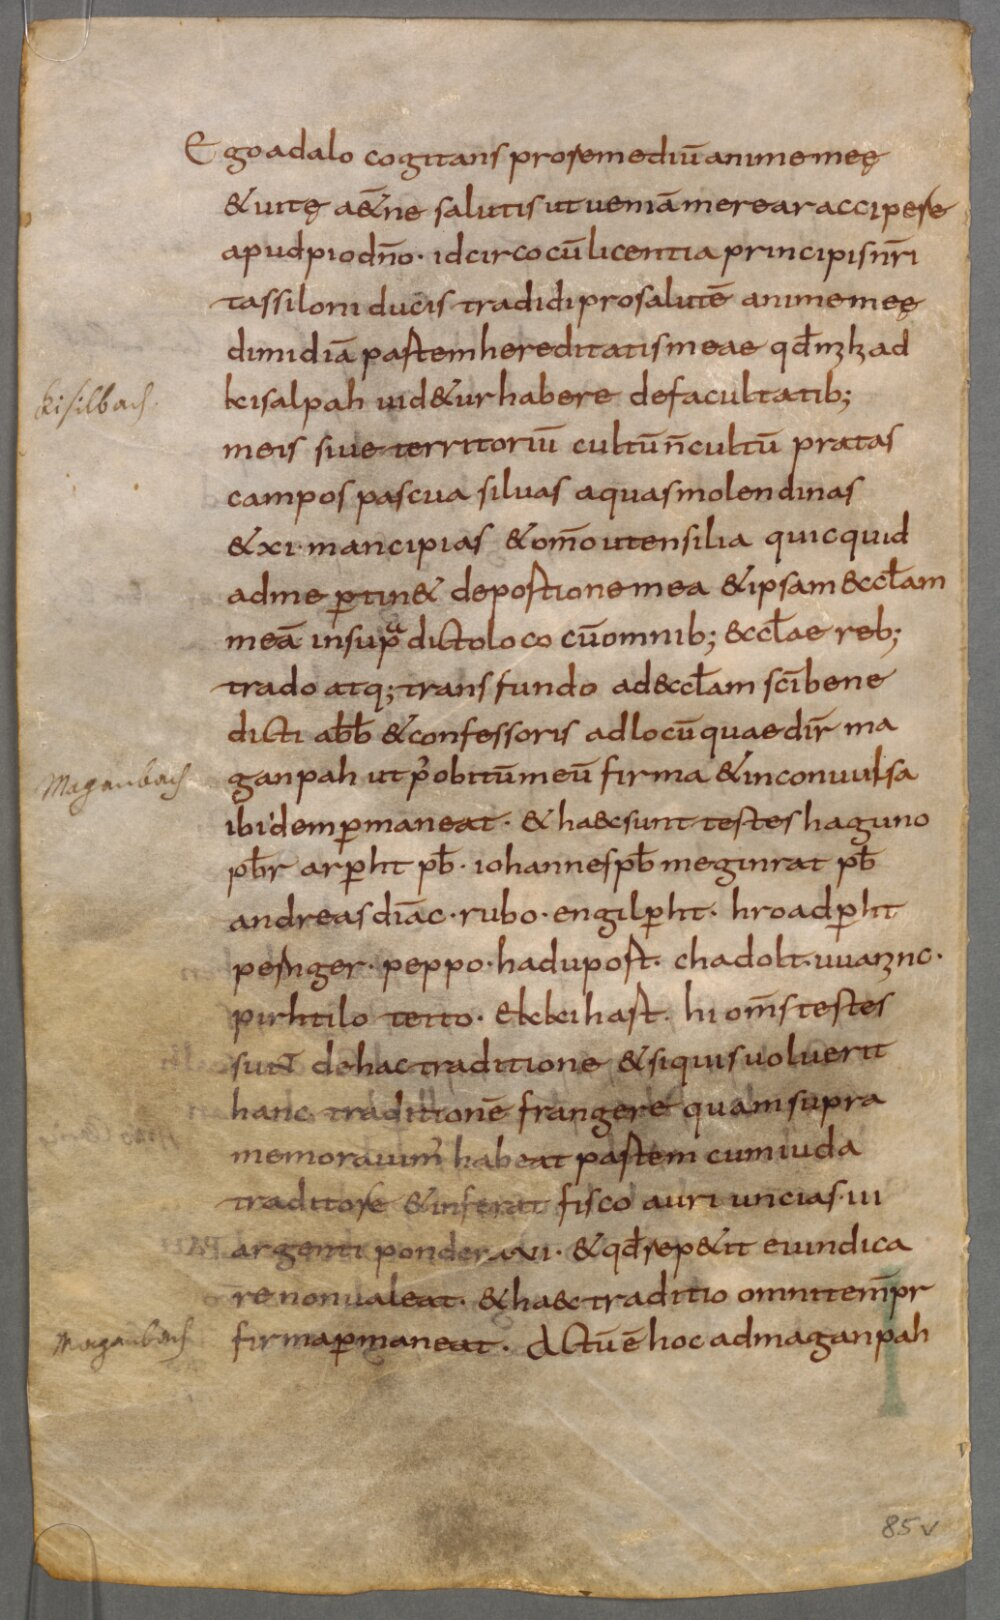 Ego adalo cogitans pro remediū anime meę
& uitę aē&ne salutis ut ueniā merear accipere
apud pio dn̄o · idcirco cū licentia principis nr̄i
tassiloni ducis tradidi pro salutē anime meę
dimidiā partem hereditatis meae ad
Kisilbach
kisalpah uid&ur habere de facultatib;
meis siue territoriū cultū n̄cultū pratas
campos pascua siluas aquas molendinas
& xi · mancipias & om̄o utensilia quicquid
ad me ꝑtin& deportione mea & ipsam &ccƚam
meā in supᵃ dicto loco cū omnib; &ccƚae reb;
trado atq; transfundo ad &ccƚam sc̄i bene
dicti abƀ & confessoris ad locū quae dir̄ ma
Maganbach
ganpah ut p̄ obitū meū firma & inconuulsa
ibidem ꝑmaneat · & haec sunt testes haguno
pƀr arꝑht pƀ · iohannes pƀ meginrat pƀ
andreas diāc · rubo · engilꝑht · hroadꝑht
peringer · peppo · hadupost · chadolt · uuaznc ·
pirhtilo teito · ekkihart · hi om̄s testes
sunt de hac traditione & siquis uoluerit
hanc traditionē frangere quam supra
memorauim᾽ habeat partem cum iuda
traditore & inferat fisco auri uncias · iii
argenti pondera xi · & qđ rep&it euindica
re non ualeat · & haec traditio omni tem̄pr
Maganbach
firma ꝑmaneat · Actū ē hoc ad maganpah
85v